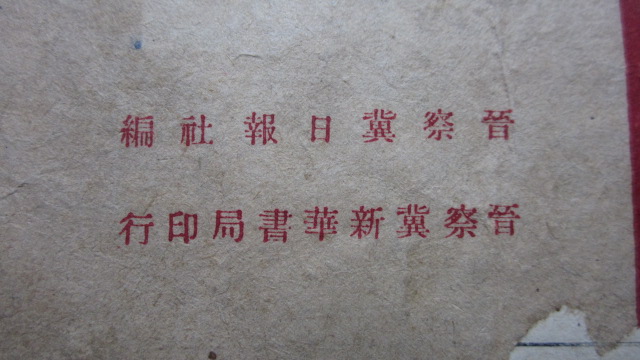 晉察冀日報社編
晉察冀新華書局印行